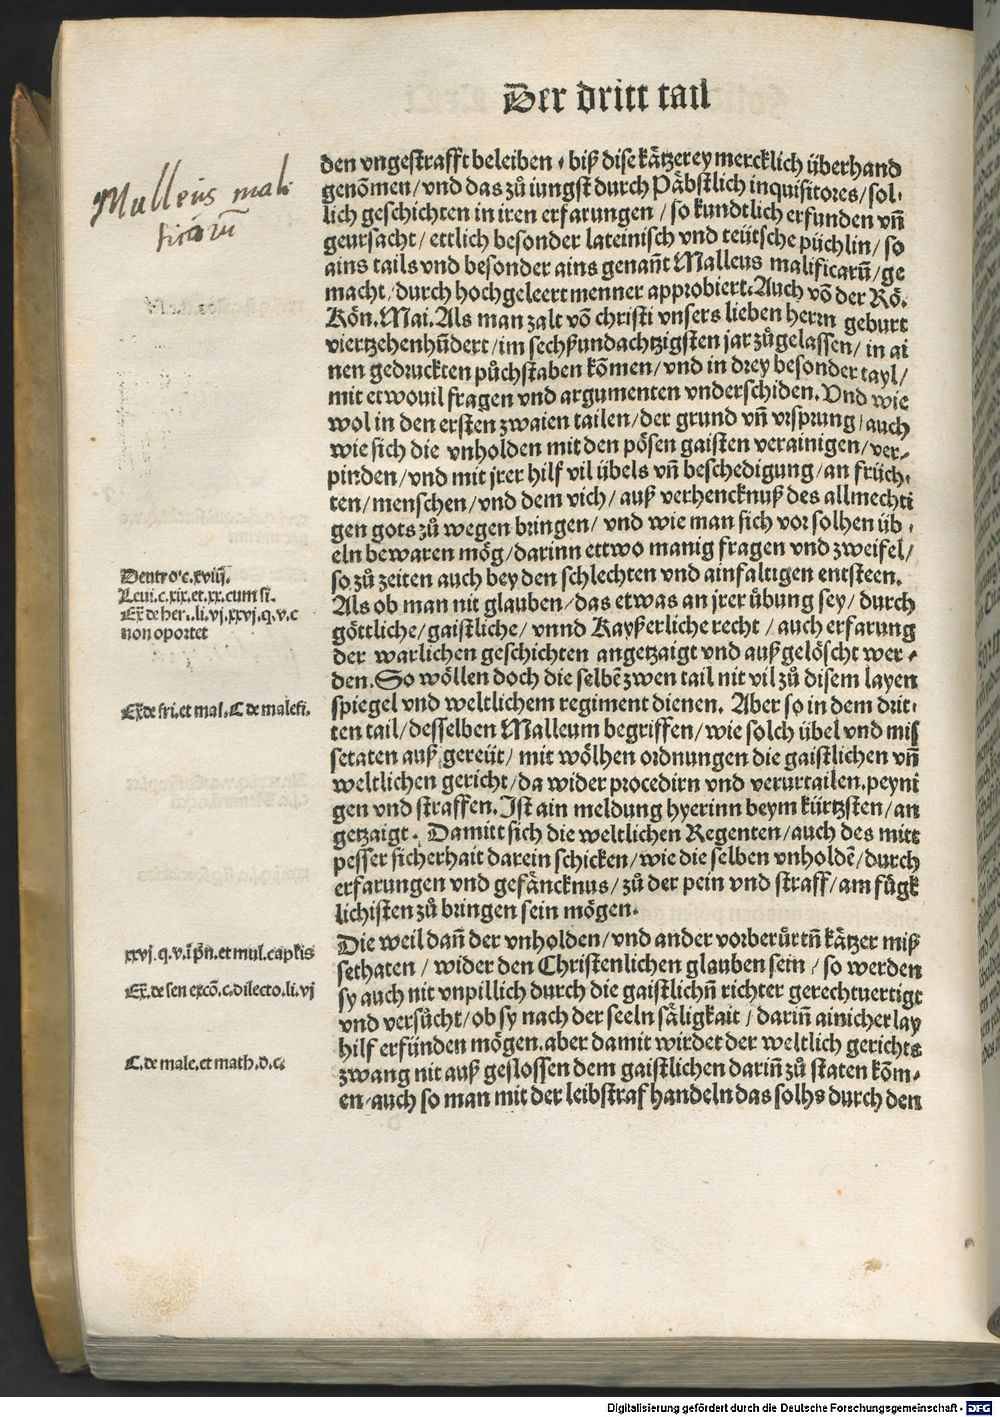 Der dritt tail
Malleus mali
ficarū
den vngestrafft beleiben / biß dise kätzerey mercklich überhand
genōmen / vnd das zů iungst durch Päbstlich inquisitores / sol⸗
lich geschichten in iren erfarungen / so kundtlich erfunden vn̄
geursacht / ettlich besonder lateinisch vnd teütsche püchlin / so
ains tails vnd besonder ains genan̄t Malleus malificarū / ge
macht / durch hochgeleert menner approbiert. Auch vō der Rö.
Kön. Mai. Als man zalt vō christi vnsers lieben herrn geburt
viertzehenhūdert / im sechßundachtzigsten jar zůgelassen / in ai
nen gedruckten půchstaben kōmen / vnd in drey besonder tayl /
mit etwouil fragen vnd argumenten vnderschiden. Vnd wie
wol in den ersten zwaien tailen / der grund vn̄ vrsprung / auch
wie sich die vnholden mit den pösen gaisten verainigen / ver⸗
pinden / vnd mit jrer hilf vil übels vn̄ beschedigung / an früch⸗
ten / menschen / vnd dem vich / auß verhencknuß des allmechti
gen gots zů wegen bringen / vnd wie man sich vor solhen üb⸗
eln bewaren mög / darinn ettwo manig fragen vnd zweifel /
so zů zeiten auch bey den schlechten vnd ainfaltigen entsteen.
Als ob man nit glauben / das etwas an jrer übung sey / durch
göttliche / gaistliche / vnnd Kayßerliche recht / auch erfarung
der warlichen geschichten angetzaigt vnd außgelöscht wer⸗
den. So wöllen doch die selbē zwen tail nit vil zů disem layen
spiegel vnd weltlichem regiment dienen. Aber so in dem drit⸗
ten tail / desselben Malleum begriffen / wie solch übel vnd mis
setaten auß gereüt / mit wölhen ordnungen die gaistlichen vn̄
weltlichen gericht / da wider procedirn vnd verurtailen. peyni
gen vnd straffen. Ist ain meldung hyerinn beym kürtzsten / an
getzaigt. Damitt sich die weltlichen Regenten / auch des mitt
pesser sicherhait darein schicken / wie die selben vnholdē / durch
erfarungen vnd gefäncknus / zů der pein vnd straff / am fügk
lichisten zů bringen sein mögen.
Deutro. c. xviij.
Leui. c. xix. et. xx. cum si.
Ex̄ de her. li. vj. xxvj. q. v. c
non oportet
Ex̄ de fri. et mal. C de malefi.
Die weil dan̄ der vnholden / vnd ander vorberürtn̄ kätzer miß
sethaten / wider den Christenlichen glauben sein / so werden
sy auch nit vnpillich durch die gaistlichn̄ richter gerechtuertigt
vnd versůcht / ob sy nach der seeln säligkait / darin̄ ainicherlay
hilf erfünden mögen. aber damit wirdet der weltlich gerichts
zwang nit auß geslossen dem gaistlichen darin̄ zů staten kōm⸗
en / auch so man mit der leibstraf handeln das solhs durch den
xxvj. q. v. ī pn̄. et mul. capłis
Ex̄. de sen excō. c. dilecto. li. vj
C. de male. et math. d. c.
Digitalisierung gefördert durch die Deutsche Forschungsgemeinschaft - DFG